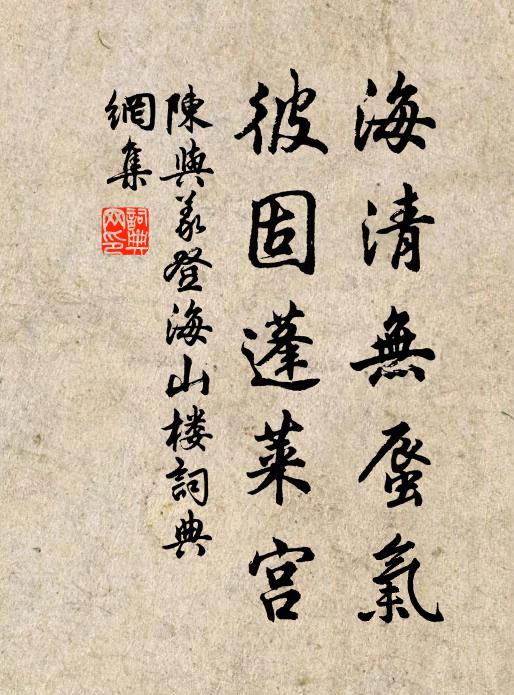 海清無蜃氣
彼固蓬萊宫
陳與義登海山楼詞典
網集
詞典网印